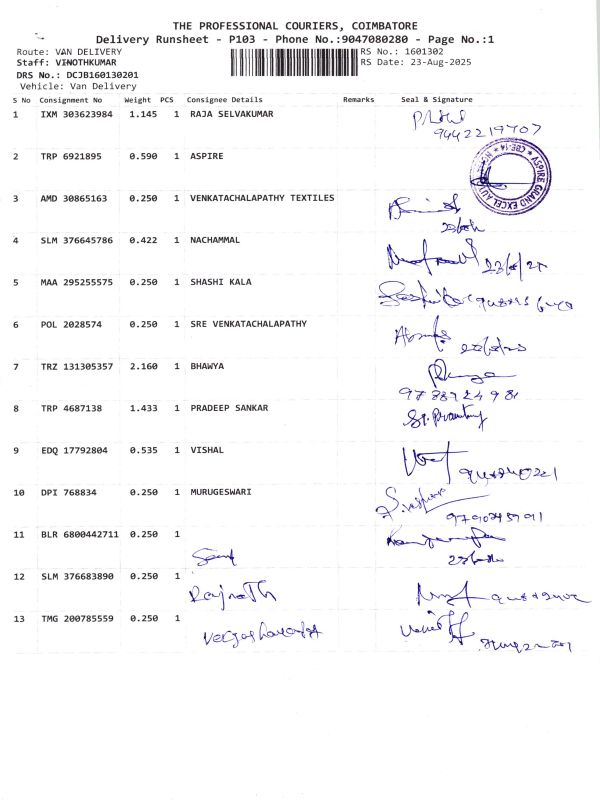 THE PROFESSIONAL COURIERS, COIMBATORE
Delivery Runsheet - P103 - Phone No.:9047080280 - Page No.:1
Route: VAN DELIVERY RS No.: 1601302
Staff: VINOTHKUMAR RS Date: 23-Aug-2025
DRS No.: DCJB160130201
Vehicle: Van Delivery
S No Consignment No Weight PCS Consignee Details Remarks Seal & Signature
1 IXM 303623984 1.145 1 RAJA SELVAKUMAR
9442219707
2 TRP 6921895 0.590 1 ASPIRE
ASPIRE GRAND EXCEL
3 AMD 30865163 0.250 1 VENKATACHALAPATHY TEXTILES
4 SLM 376645786 0.422 1 NACHAMMAL
23/8/25
5 MAA 295255575 0.250 1 SHASHI KALA
6 POL 2028574 0.250 1 SRE VENKATACHALAPATHY
7 TRZ 131305357 2.160 1 BHAWYA
8 TRP 4687138 1.433 1 PRADEEP SANKAR
9 EDQ 17792804 0.535 1 VISHAL
10 DPI 768834 0.250 1 MURUGESWARI
11 BLR 6800442711 0.250 1
12 SLM 376683890 0.250 1
Rajnath
13 TMG 200785559 0.250 1